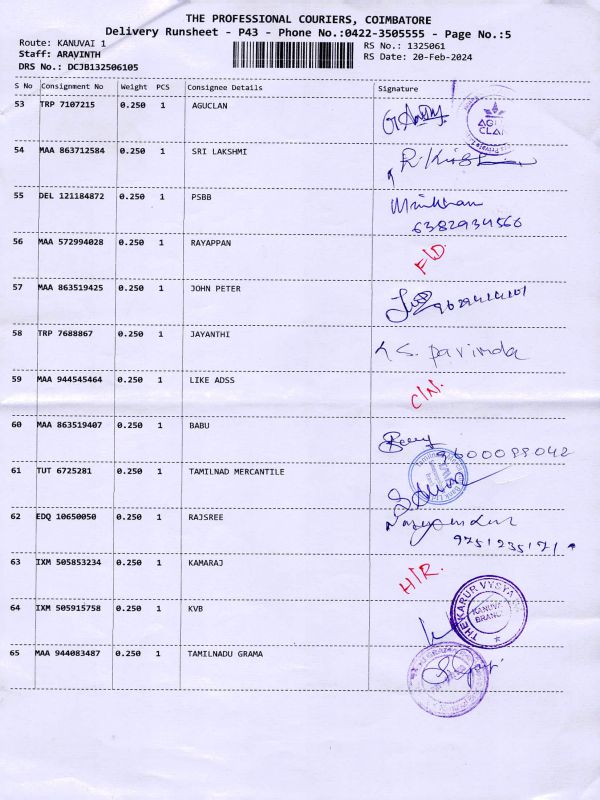 THE PROFESSIONAL COURIERS, COIMBATORE
Delivery Runsheet - P43 - Phone No.:0422-3505555 - Page No.:5
Route: KANUVAI 1 RS No.: 1325061
Staff: ARAVINTH RS Date: 20-Feb-2024
DRS No.: DCJB132506105
S No Consignment No Weight PCS Consignee Details Signature
53 TRP 7107215 0.250 1 AGUCLAN
54 MAA 863712584 0.250 1 SRI LAKSHMI
55 DEL 121184872 0.250 1 PSBB
6382934560
56 MAA 572994028 0.250 1 RAYAPPAN F/D.
57 MAA 863519425 0.250 1 JOHN PETER
58 TRP 7688867 0.250 1 JAYANTHI
59 MAA 944545464 0.250 1 LIKE ADSS C/N.
60 MAA 863519407 0.250 1 BABU 9600099042
61 TUT 6725281 0.250 1 TAMILNAD MERCANTILE
62 EDQ 10650050 0.250 1 RAJSREE
9751235171
63 IXM 505853234 0.250 1 KAMARAJ H/R.
64 IXM 505915758 0.250 1 KVB THE KARUR VYSYA KANUVAI BRANCH
65 MAA 944083487 0.250 1 TAMILNADU GRAMA